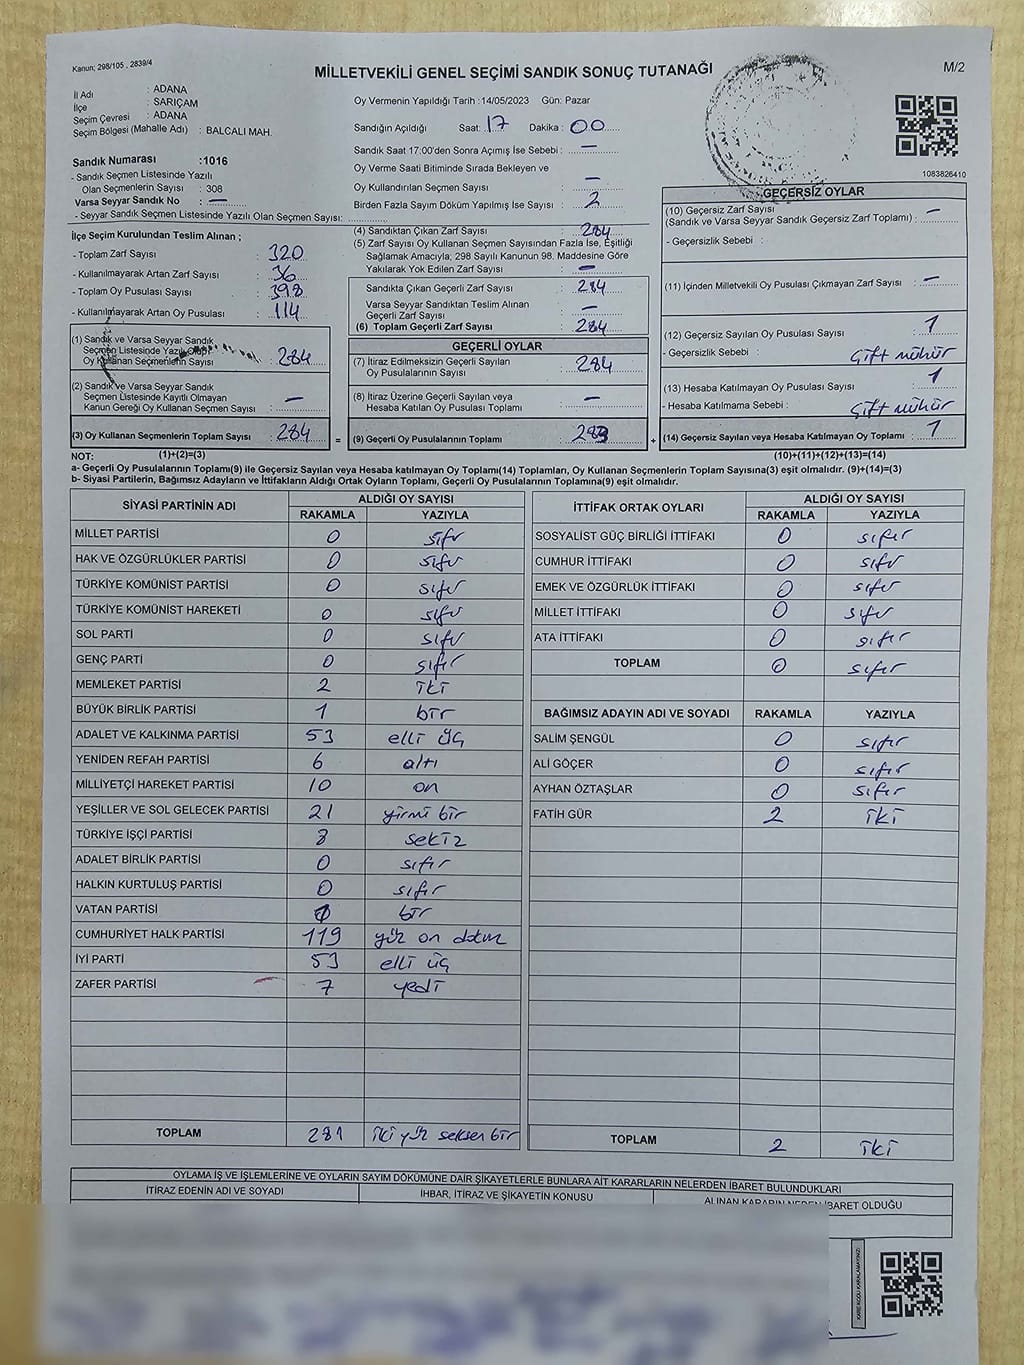 Kanun; 298/105 , 2839/4
MİLLETVEKİLİ GENEL SEÇİMİ SANDIK SONUÇ TUTANAĞI
M/2
İl Adı : ADANA
İlçe : SARIÇAM
Seçim Çevresi : ADANA
Seçim Bölgesi (Mahalle Adı) : BALCALI MAH.
Sandık Numarası :1016
- Sandık Seçmen Listesinde Yazılı
Olan Seçmenlerin Sayısı : 308
Varsa Seyyar Sandık No : —
- Seyyar Sandık Seçmen Listesinde Yazılı Olan Seçmen Sayısı:
Oy Vermenin Yapıldığı Tarih :14/05/2023 Gün: Pazar
Sandığın Açıldığı Saat: 17 Dakika : 00
Sandık Saat 17:00'den Sonra Açımış İse Sebebi : —
Oy Verme Saati Bitiminde Sırada Bekleyen ve
Oy Kullandırılan Seçmen Sayısı : —
Birden Fazla Sayım Döküm Yapılmış İse Sayısı : 2
1083826410
İlçe Seçim Kurulundan Teslim Alınan ;
- Toplam Zarf Sayısı : 320
- Kullanılmayarak Artan Zarf Sayısı : 36
- Toplam Oy Pusulası Sayısı : 398
- Kullanılmayarak Artan Oy Pusulası : 114
(1) Sandık ve Varsa Seyyar Sandık
Seçmen Listesinde Yazılı Olup
Oy Kullanan Seçmenlerin Sayısı : 284
(2) Sandık ve Varsa Seyyar Sandık
Seçmen Listesinde Kayıtlı Olmayan
Kanun Gereği Oy Kullanan Seçmen Sayısı : —
(3) Oy Kullanan Seçmenlerin Toplam Sayısı : 284
(4) Sandıktan Çıkan Zarf Sayısı : 284
(5) Zarf Sayısı Oy Kullanan Seçmen Sayısından Fazla İse, Eşitliği
Sağlamak Amacıyla, 298 Sayılı Kanunun 98. Maddesine Göre
Yakılarak Yok Edilen Zarf Sayısı : —
Sandıkta Çıkan Geçerli Zarf Sayısı : 284
Varsa Seyyar Sandıktan Teslim Alınan
Geçerli Zarf Sayısı : —
(6) Toplam Geçerli Zarf Sayısı : 284
GEÇERLİ OYLAR
(7) İtiraz Edilmeksizin Geçerli Sayılan
Oy Pusulalarının Sayısı : 284
(8) İtiraz Üzerine Geçerli Sayılan veya
Hesaba Katılan Oy Pusulaları Toplamı : —
= (9) Geçerli Oy Pusulalarının Toplamı : 283 +
GEÇERSİZ OYLAR
(10) Geçersiz Zarf Sayısı
(Sandık ve Varsa Seyyar Sandık Geçersiz Zarf Toplamı) : —
- Geçersizlik Sebebi :
(11) İçinden Milletvekili Oy Pusulası Çıkmayan Zarf Sayısı : —
(12) Geçersiz Sayılan Oy Pusulası Sayısı : 1
- Geçersizlik Sebebi : Çift mühür
(13) Hesaba Katılmayan Oy Pusulası Sayısı : 1
- Hesaba Katılmama Sebebi : Çift mühür
(14) Geçersiz Sayılan veya Hesaba Katılmayan Oy Toplamı : 1
NOT: (1)+(2)=(3) (10)+(11)+(12)+(13)=(14)
a- Geçerli Oy Pusulalarının Toplamı(9) ile Geçersiz Sayılan veya Hesaba katılmayan Oy Toplamı(14) Toplamları, Oy Kullanan Seçmenlerin Toplam Sayısına(3) eşit olmalıdır. (9)+(14)=(3)
b- Siyasi Partilerin, Bağımsız Adayların ve İttifakların Aldığı Ortak Oyların Toplamı, Geçerli Oy Pusulalarının Toplamına(9) eşit olmalıdır.
SİYASİ PARTİNİN ADI ALDIĞI OY SAYISI
RAKAMLA YAZIYLA
MİLLET PARTİSİ 0 sıfır
HAK VE ÖZGÜRLÜKLER PARTİSİ 0 sıfır
TÜRKİYE KOMÜNİST PARTİSİ 0 sıfır
TÜRKİYE KOMÜNİST HAREKETİ 0 sıfır
SOL PARTİ 0 sıfır
GENÇ PARTİ 0 sıfır
MEMLEKET PARTİSİ 2 iki
BÜYÜK BİRLİK PARTİSİ 1 bir
ADALET VE KALKINMA PARTİSİ 53 elli üç
YENİDEN REFAH PARTİSİ 6 altı
MİLLİYETÇİ HAREKET PARTİSİ 10 on
YEŞİLLER VE SOL GELECEK PARTİSİ 21 yirmi bir
TÜRKİYE İŞÇİ PARTİSİ 8 sekiz
ADALET BİRLİK PARTİSİ 0 sıfır
HALKIN KURTULUŞ PARTİSİ 0 sıfır
VATAN PARTİSİ 1 bir
CUMHURİYET HALK PARTİSİ 119 yüz on dokuz
İYİ PARTİ 53 elli üç
ZAFER PARTİSİ 7 yedi
TOPLAM 281 iki yüz seksen bir
İTTİFAK ORTAK OYLARI ALDIĞI OY SAYISI
RAKAMLA YAZIYLA
SOSYALİST GÜÇ BİRLİĞİ İTTİFAKI 0 sıfır
CUMHUR İTTİFAKI 0 sıfır
EMEK VE ÖZGÜRLÜK İTTİFAKI 0 sıfır
MİLLET İTTİFAKI 0 sıfır
ATA İTTİFAKI 0 sıfır
TOPLAM 0 sıfır
BAĞIMSIZ ADAYIN ADI VE SOYADI RAKAMLA YAZIYLA
SALİM ŞENGÜL 0 sıfır
ALİ GÖÇER 0 sıfır
AYHAN ÖZTAŞLAR 0 sıfır
FATİH GÜR 2 iki
TOPLAM 2 iki
OYLAMA İŞ VE İŞLEMLERİNE VE OYLARIN SAYIM DÖKÜMÜNE DAİR ŞİKAYETLERLE BUNLARA AİT KARARLARIN NELERDEN İBARET BULUNDUKLARI
İTİRAZ EDENİN ADI VE SOYADI İHBAR, İTİRAZ VE ŞİKAYETİN KONUSU ALINAN KARARIN NEDEN İBARET OLDUĞU
KARE KODU KARALAMAYINIZ!